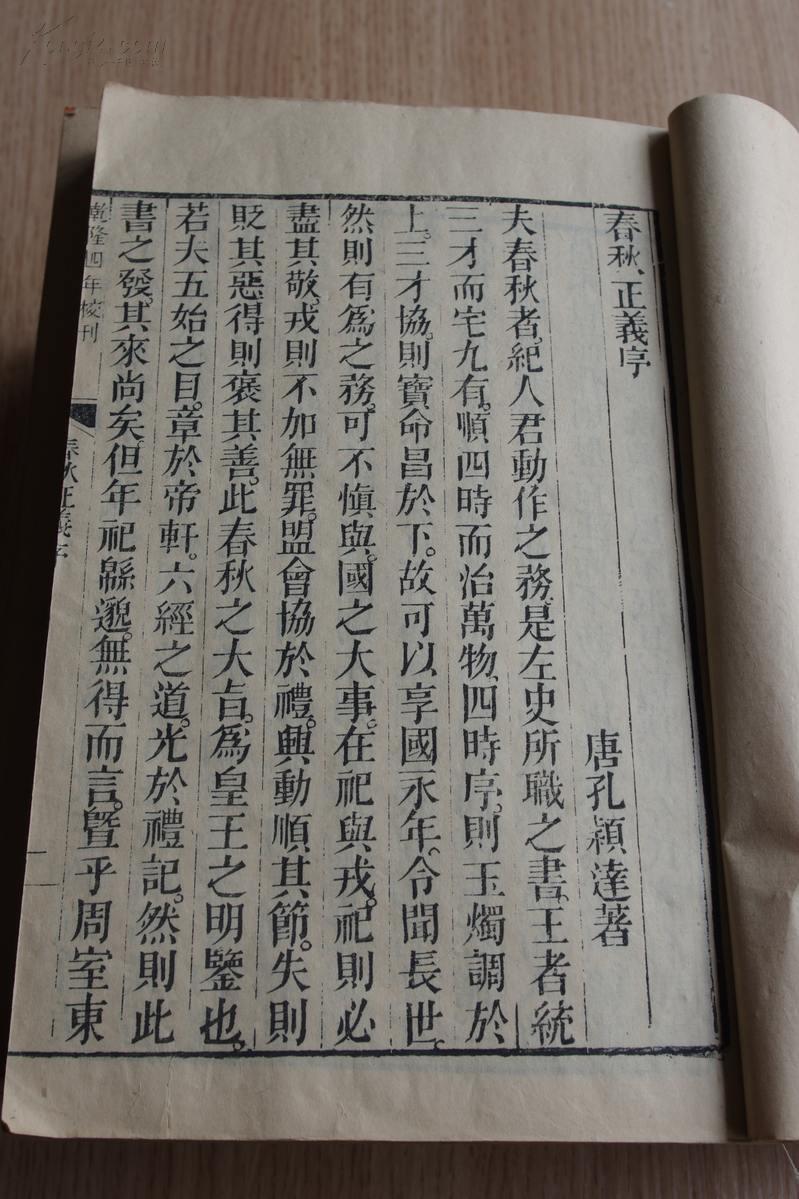 春秋正義序
唐孔穎達著
夫春秋者。紀人君動作之務。是左史所職之書。王者統
三才而宅九有。順四時而治萬物。四時序。則玉燭調於
上。三才協。則寶命昌於下。故可以享國永年。令聞長世。
然則有爲之務。可不慎與。國之大事。在祀與戎。祀則必
盡其敬。戎則不加無罪。盟會協於禮。興動順其節。失則
貶其惡。得則褒其善。此春秋之大旨。爲皇王之明鑒也。
若夫五始之目。章於帝軒。六經之道。光於禮記。然則此
書之發。其來尚矣。但年祀緜邈。無得而言。暨乎周室東
乾隆四年校刊
春秋正義序